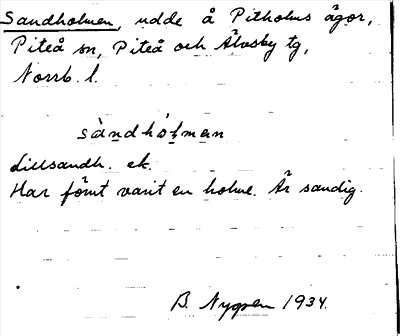 Sandholmen, udde å Pitholms ägor,
Piteå sn, Piteå och Älvsby tg,
Norrb. l.
sàndhól̥mən
Lillsandh. ek.
Har förut varit en holme. Är sandig.
B. Nygren 1934.